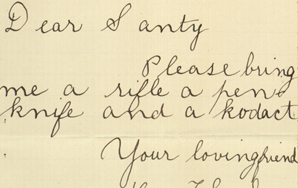 Dear Santy
Please bring
me a rifle a pen-
knife and a kodact
Your loving friend